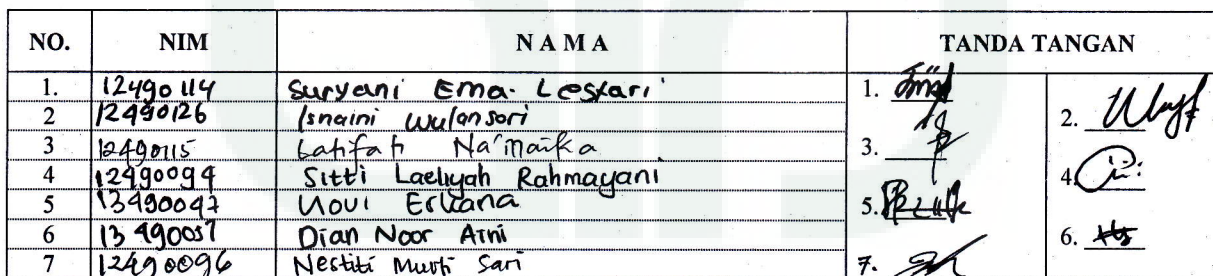 NO. NIM N A M A TANDA TANGAN
1. 12490114 Suryani Ema Lestari 1.
2 12490126 Isnaini Wulansari 2.
3 12490115 Latifah Na'maika 3.
4 12490094 Sitti Laeliyah Rahmayani 4.
5 13490047 Novi Erliana 5.
6 13490057 Dian Noor Aini 6.
7 12490096 Nestiti Murti Sari 7.